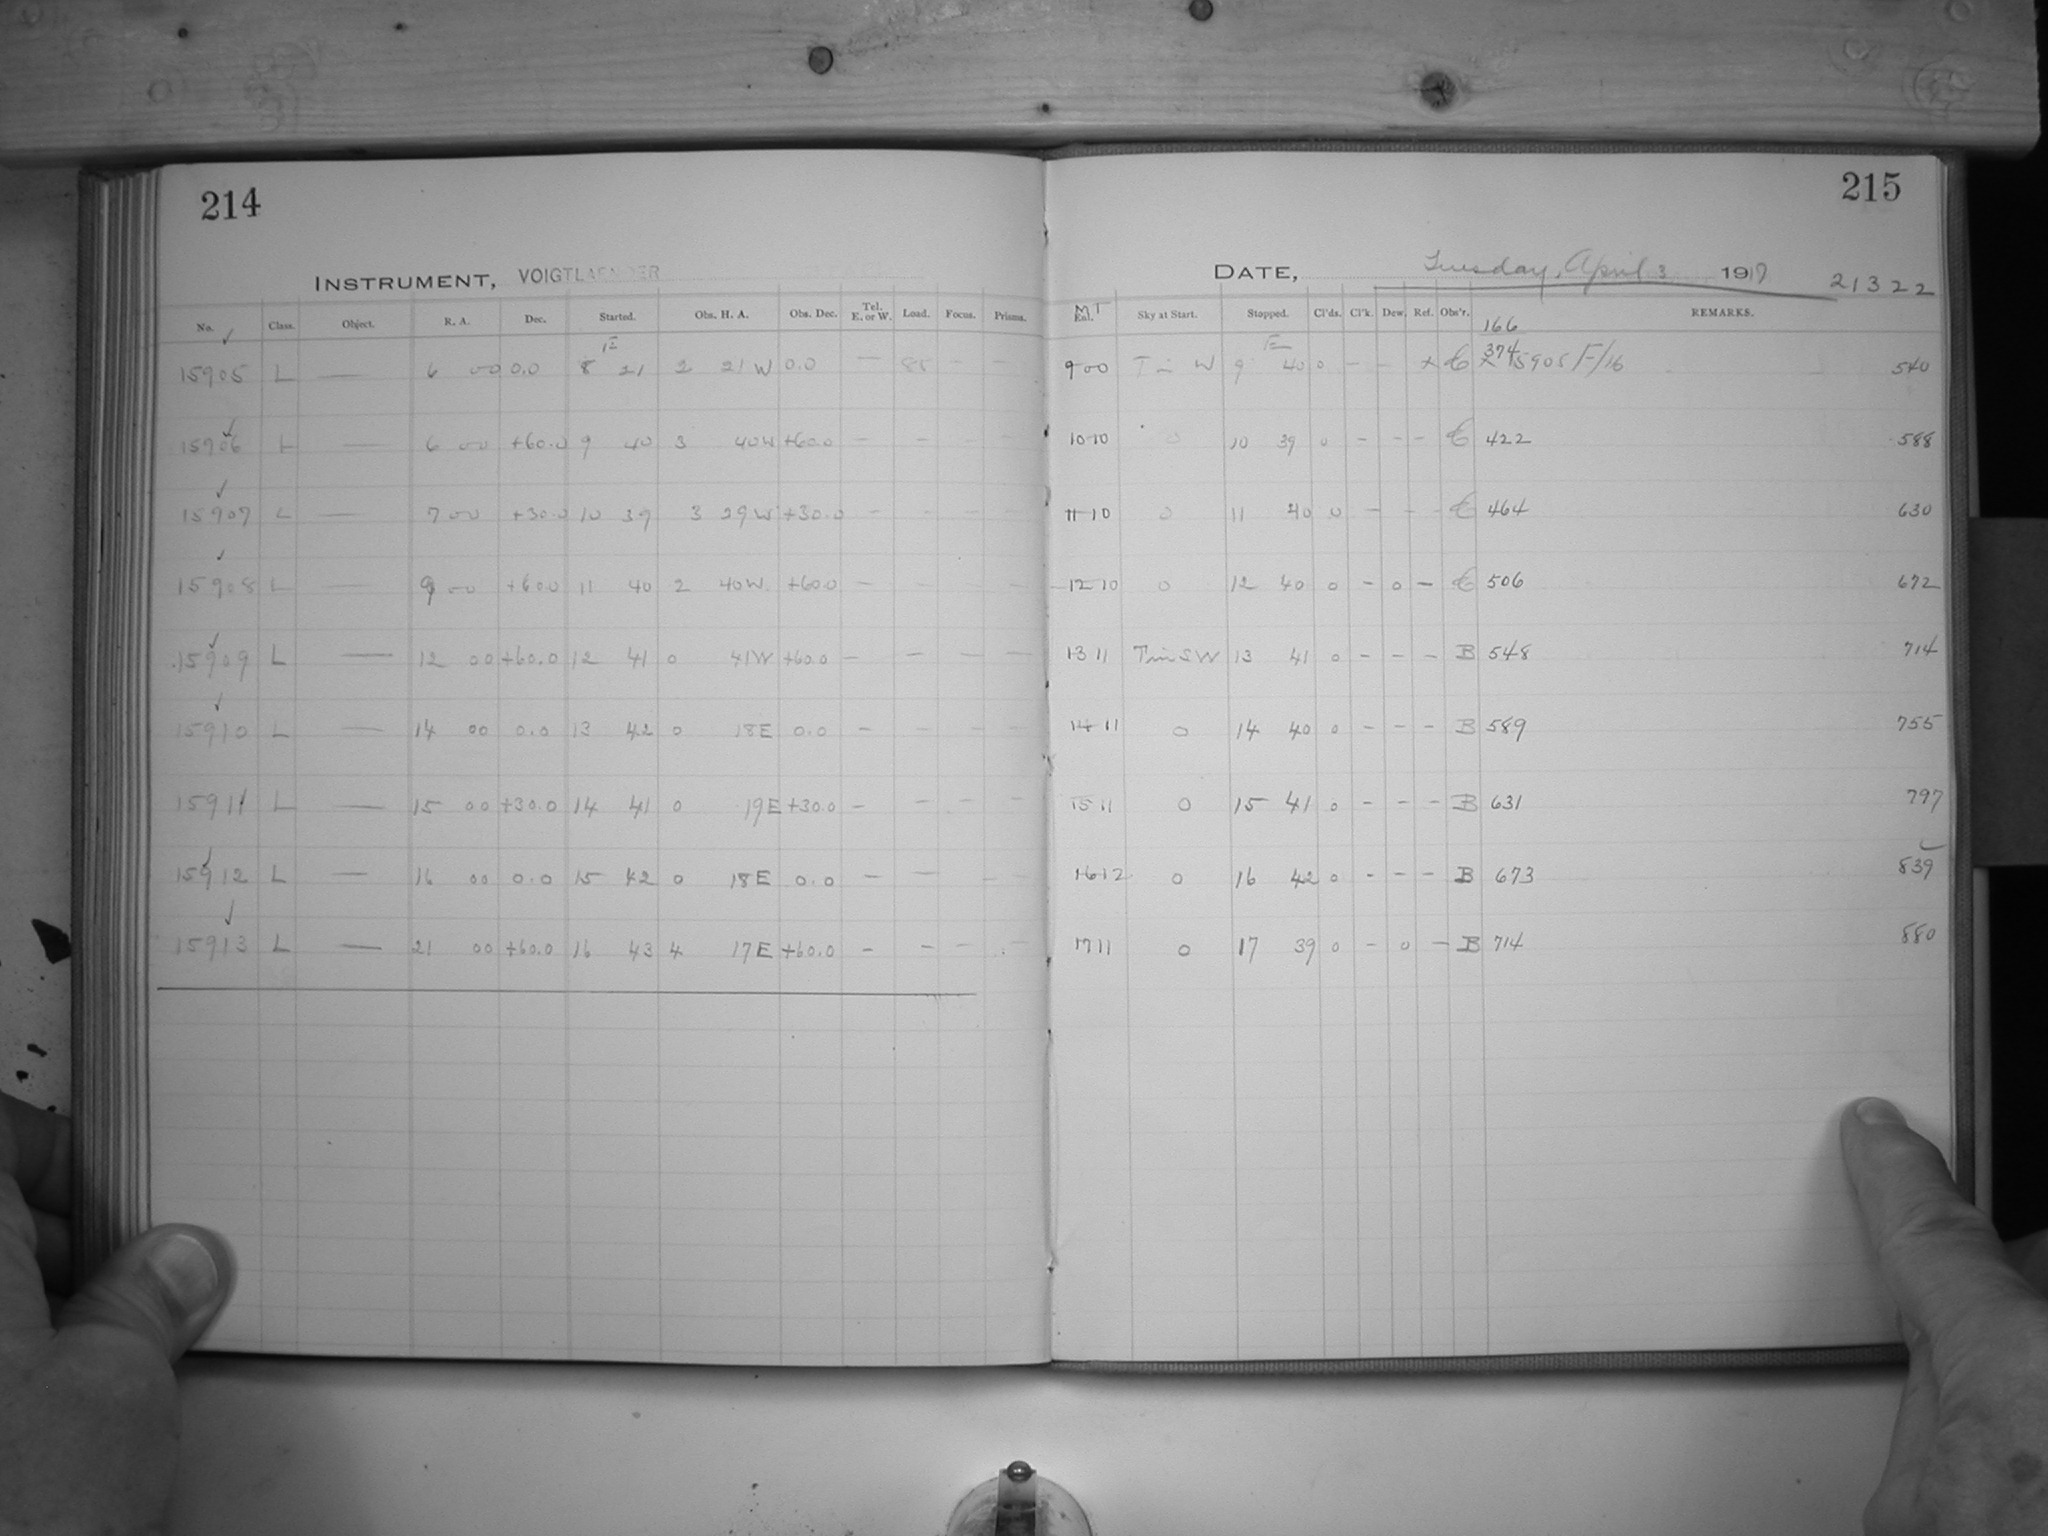 214
INSTRUMENT, VOIGTLAENDER
No. Class. Object. R. A. Dec. Started. Obs. H. A. Obs. Dec. Tel. E. or W. Load. Focus. Prisms.
E
15905 L — 6 00 0.0 8 21 2 21 W 0.0 — 85 – –
15906 L — 6 00 +60.0 9 40 3 40W +60.0 – – – –
15907 L — 7 00 +30.0 10 39 3 29W +30.0 – – – –
15908 L — 9 00 +60.0 11 40 2 40W +60.0 – – – –
15909 L — 12 00 +60.0 12 41 0 41W +60.0 – – – –
15910 L — 14 00 0.0 13 42 0 18E 0.0 – – – –
15911 L — 15 00 +30.0 14 41 0 19E +30.0 – – – –
15912 L — 16 00 0.0 15 42 0 18E 0.0 – – – –
15913 L — 21 00 +60.0 16 43 4 17E +60.0 – – – –
215
DATE, Tuesday, April 3 1917 21322
MT
Exl. Sky at Start. Stopped. Cl'ds. Cl'k. Dew. Ref. Obs'r. REMARKS.
166
E 374
9 00 W 9 40 0 – – x 15905 F/16 540
10 10 0 10 39 0 – – – 422 588
11 10 0 11 40 0 – – – 464 630
12 10 0 12 40 0 – 0 – 506 672
13 11 Tm SW 13 41 0 – – – B 548 714
14 11 0 14 40 0 – – – B 589 755
15 11 0 15 41 0 – – – B 631 797
16 12 0 16 42 0 – – – B 673 839
17 11 0 17 39 0 – 0 – B 714 880